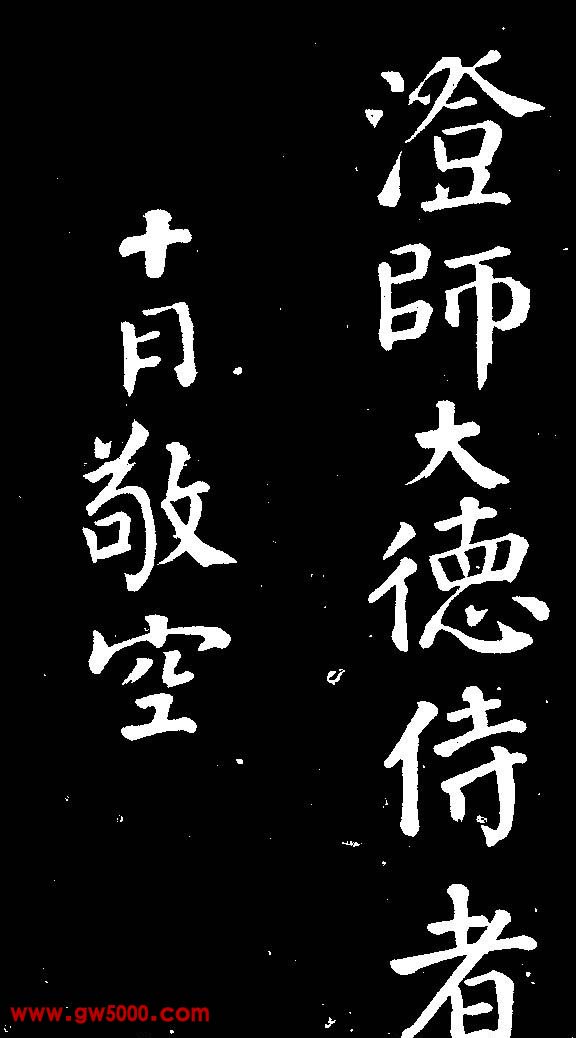 澄師大德侍者
十月敬空
www.gw5000.com